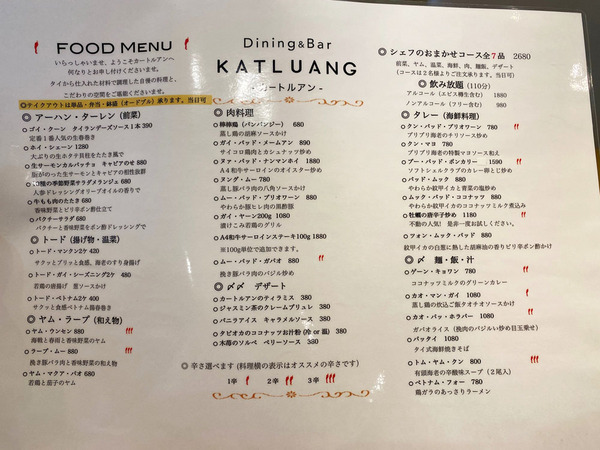 FOOD MENU
いらっしゃいませ、ようこそカートルアンへ
何なりとお申し付けくださいませ。
タイから仕入れた材料で調理した自慢の料理と、
こだわりの空間をご堪能くださいませ。
※テイクアウトは単品・弁当・鉢盛（オードブル）承ります。当日可
◎ アーハン・ターレン（前菜）
○ ゴイ・クーン タイランデーズソース1本 390
定番１番人気の生エビ
○ ホイ・シェーン 1280
大ぶりの生ホタテ貝柱をたたき風で
○ 生サーモンカルパッチョ キャビアのせ 880
脂がのった生サーモンとキャビアの相性抜群
○ 季節野菜サラダメランジェ 680
人参ドレッシングオリーブオイルの香りで
○ 牛もも肉のたたき 690
香味野菜とピリ辛ポン酢仕立て
○ パクチーサラダ 680
パクチーと香味野菜をポン酢ドレッシングで
◎ トード（揚げ物・温菜）
○ トード・マンクン2ケ 420
サクッとプリッと食感、海老のすり身揚げ
○ トード・ガイ・シーズニング 480
若鶏の唐揚げ 葱ソースかけ
○ トード・ベトナム2ケ 400
サクッと食感ベトナム揚春巻き
◎ ヤム・ラープ（和え物）
○ ヤム・ウンセン 880
海鮮と春雨と香味野菜の和え物
○ ラープ・ムー 880
挽き豚バラ肉と香味野菜の和え物
○ ヤム・マクア・パオ 680
若鶏と茄子のヤム
Dining&Bar
KATLUANG
- カートルアン -
◎ 肉料理
○ 棒棒鶏（バンバンジー） 680
蒸し鶏の胡麻ソースかけ
○ ガイ・パッド・メームアン 890
サイコロ鶏肉とカシュナッツ炒め
○ ヌァ・パッド・ナンマンホイ 1880
A４和牛サーロインのオイスター炒め
○ ヌング・ムー 780
蒸し豚バラ肉の八角ソースかけ
○ ムー・パッド・プリオワーン 880
やわらか豚ヒレ肉の黒酢豚
○ ガイ・ヤーン200g 1080
漬けこみ若鶏のグリル
○ A4和牛サーロインステーキ100g 1880
※100g単位で追加できます。
○ ムー・パッド・ガパオ 880
挽き豚バラ肉のバジル炒め
◎ 〆〆 デザート
○ カートルアンのティラミス 380
○ ジャスミン茶のクレームブリュレ 380
○ バニラアイス キャラメルソース 380
○ タピオカのココナッツお汁粉（冷 or 温） 380
○ 木苺のソルベ ベリーソース 380
◎ 辛さ選べます（料理横の表示はオススメの辛さです）
1辛 2辛 3辛
◎ シェフのおまかせコース全７品 2680
前菜、ヤム、温菜、海鮮、肉、麺飯、デザート
（コースは２名様よりご注文承ります、当日可）
◎ 飲み放題（110分）
アルコール（エビス樽生含む） 1480
ノンアルコール（フリー含む） 980
◎ タレー（海鮮料理）
○ クン・パッド・プリオワーン 780
プリプリ海老のチリソース炒め
○ クン・マヨ 790
プリプリ海老の特製マヨネーズ和え
○ プー・パッド・ポンカリー 1590
ソフトシェルクラブのカレー卵とじ炒め
○ パッド・ムック 880
やわらか紋甲イカと青菜の塩炒め
○ パッド・ムック・カティ 880
やわらか紋甲イカのココナッツミルク煮込み
○ 牡蠣の唐辛子炒め 1180
不動の人気！ 是非一度お試しください。
○ フォン・ムック・パッド 880
紋甲イカの白葱に熱した胡麻油の香りピリ辛ポン酢かけ
◎ 〆 麺・飯・汁
○ ゲーン・キョワン 780
ココナッツミルクのグリーンカレー
○ カオ・マン・ガイ 1080
蒸し鶏の炊込ご飯タオチオソースかけ
○ カオ・パッ・ホラパー 980
ガパオライス（挽肉のバジル炒め目玉乗せ）
○ パッタイ 980
タイ式海鮮焼きそば
○ トム・ヤム・クン 800
有頭海老の辛酸味スープ（２尾入）
○ ベトナム・フォー 780
鶏ガラのあっさりラーメン